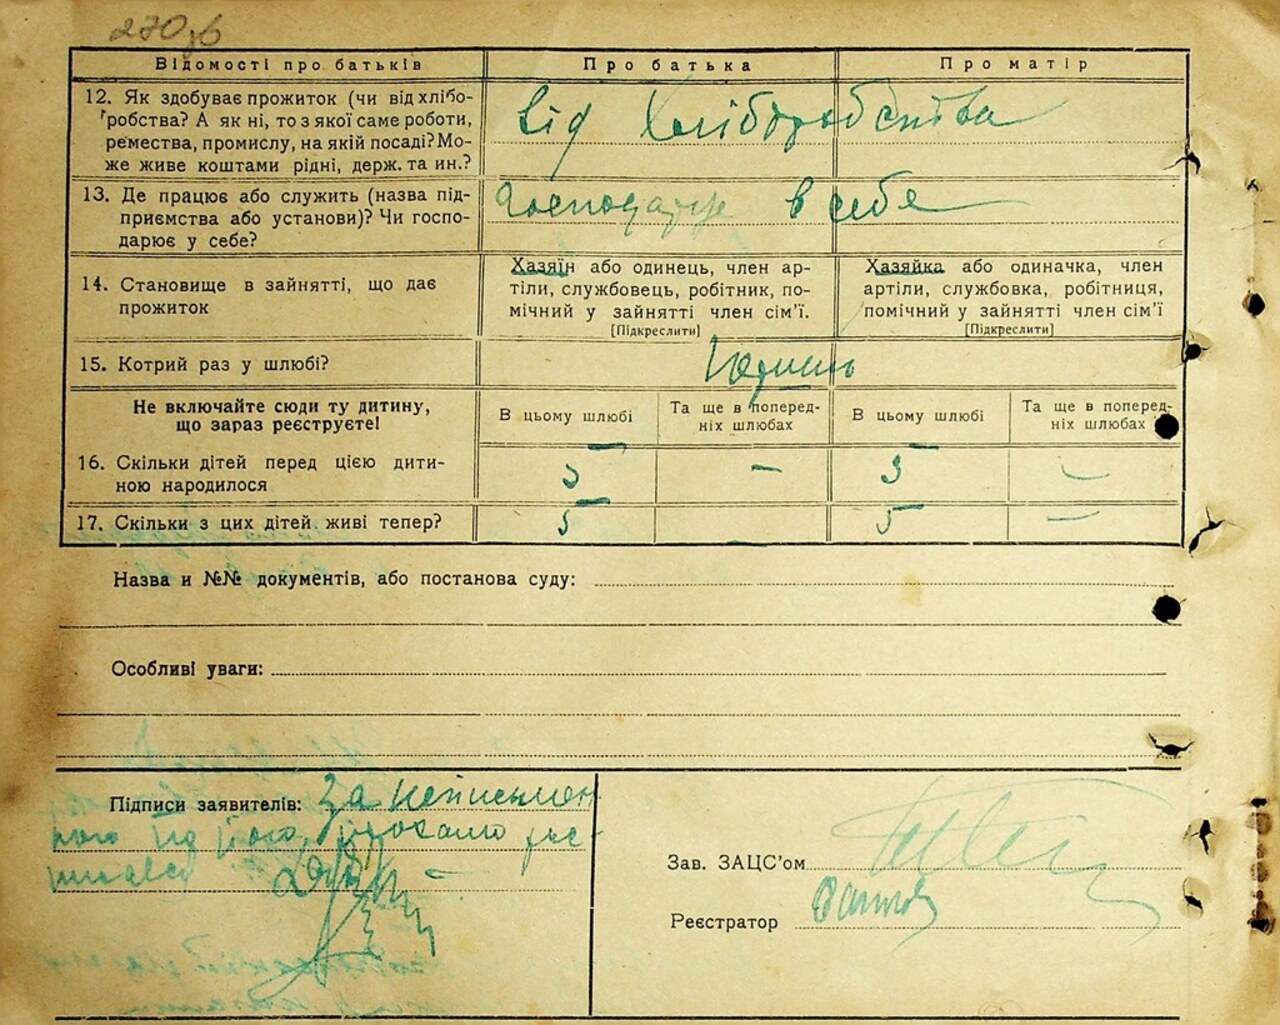 270зв
Відомості про батьків Про батька Про матір
12. Як здобуває прожиток (чи від хлібо-
робства? А як ні, то з якої саме роботи,
ремества, промислу, на якій посаді? Мо-
же живе коштами рідні, держ. та ин.?
від хліборобства
13. Де працює або служить (назва під-
приємства або установи)? Чи госпо-
дарює у себе?
господарює в себе
14. Становище в зайнятті, що дає
прожиток
Хазяїн або одинець, член ар-
тілі, службовець, робітник, по-
мічний у зайнятті член сім'ї.
[Підкреслити]
Хазяйка або одиначка, член
артіли, службовка, робітниця,
помічний у зайнятті член сім'ї
[Підкреслити]
15. Котрий раз у шлюбі?
Не включайте сюди ту дитину,
що зараз реєструєте!
В цьому шлюбі
Та ще в поперед-
ніх шлюбах
В цьому шлюбі
Та ще в поперед-
ніх шлюбах
16. Скільки дітей перед цією дити-
ною народилося
5 — 5 —
17. Скільки з цих дітей живі тепер?
5 — 5 —
Назва и №№ документів, або постанова суду:
Особливі уваги:
Підписи заявителів: За неписьмен-
ного на його прохання рос-
писався
Зав. ЗАЦС'ом
Реєстратор